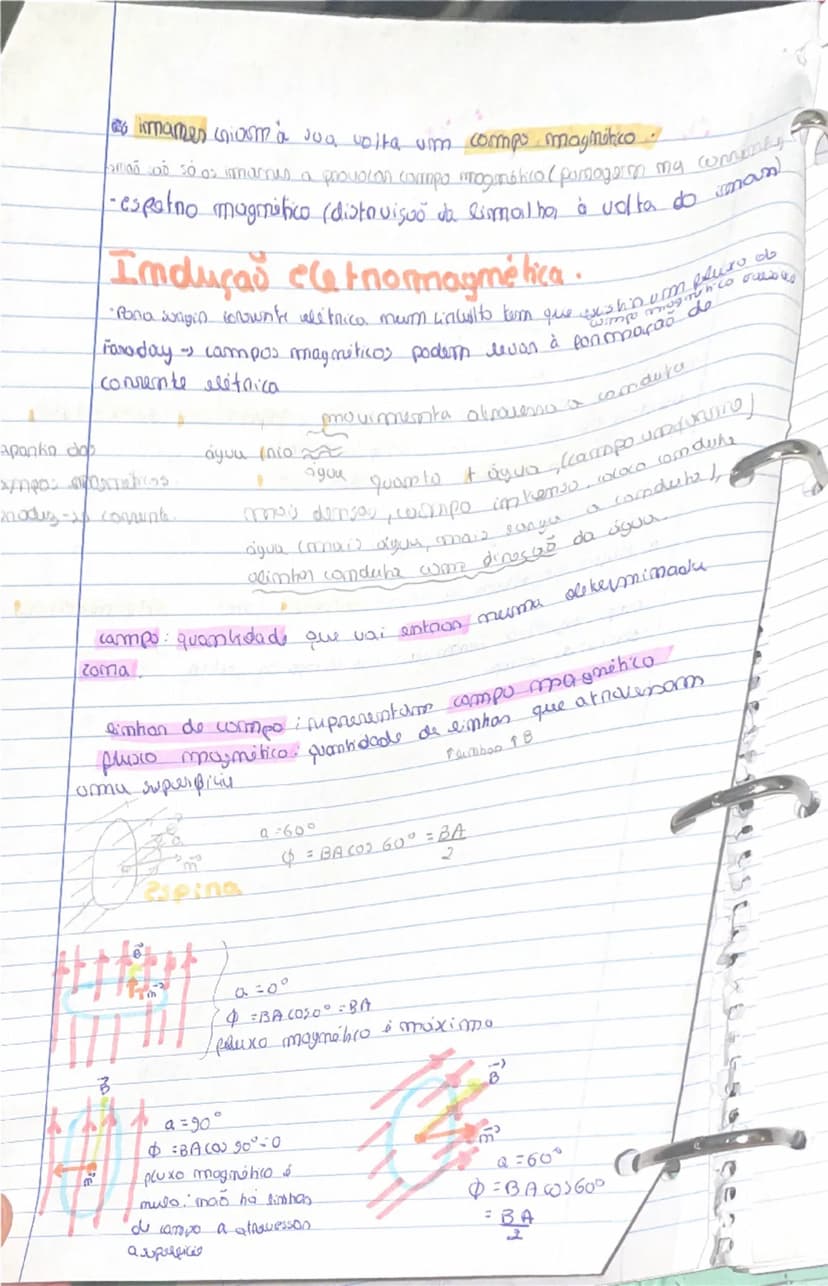 os imanes criam à sua volta um campo magnético.
não são só os imanes a provocar campo magnético (passagem na corrente)
- espetro magnético (distruição da limalha à volta do iman)
Indução eletromagnética.
· Para surgir corrente elétrica num circuito tem que existir um fluxo do campo magnético
Faraday → campos magnéticos podem levar à formação de
corrente elétrica
movimenta atravessa a conduta
água (rio
água
quanto + água, (campo uniforme)
mais densas, campo intenso. coloco conduta
água (mais água, mais surge a conduta),
alinhar conduta com direção da água.
apartir dos
campos magnéticos
produz → corrente
campo: quantidade que vai entrar numa determinada
zona.
linhas de campo: representam campo magnético
fluxo magnético: quantidade de linhas que atravessam
uma superfície
+ linhas ↑ B
a = 60°
ϕ = BA cos 60° = BA/2
n⃗
espira
B⃗
n⃗
a = 0°
ϕ = BA cos 0° = BA
fluxo magnético é máximo
B⃗
n⃗
a = 90°
ϕ = BA cos 90° = 0
fluxo magnético é
nulo: não há linhas
de campo a atravessar
a superfície
B⃗
n⃗
a = 60°
ϕ = BA cos 60°
= BA/2